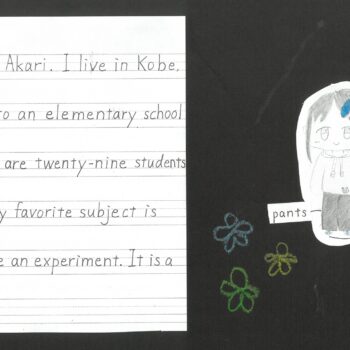 Akari. I live in Kobe.
to an elementary school
are twenty-nine students
favorite subject is
an experiment. It is a
pants